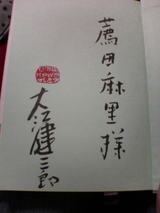 薦田麻里様
大江健三郎